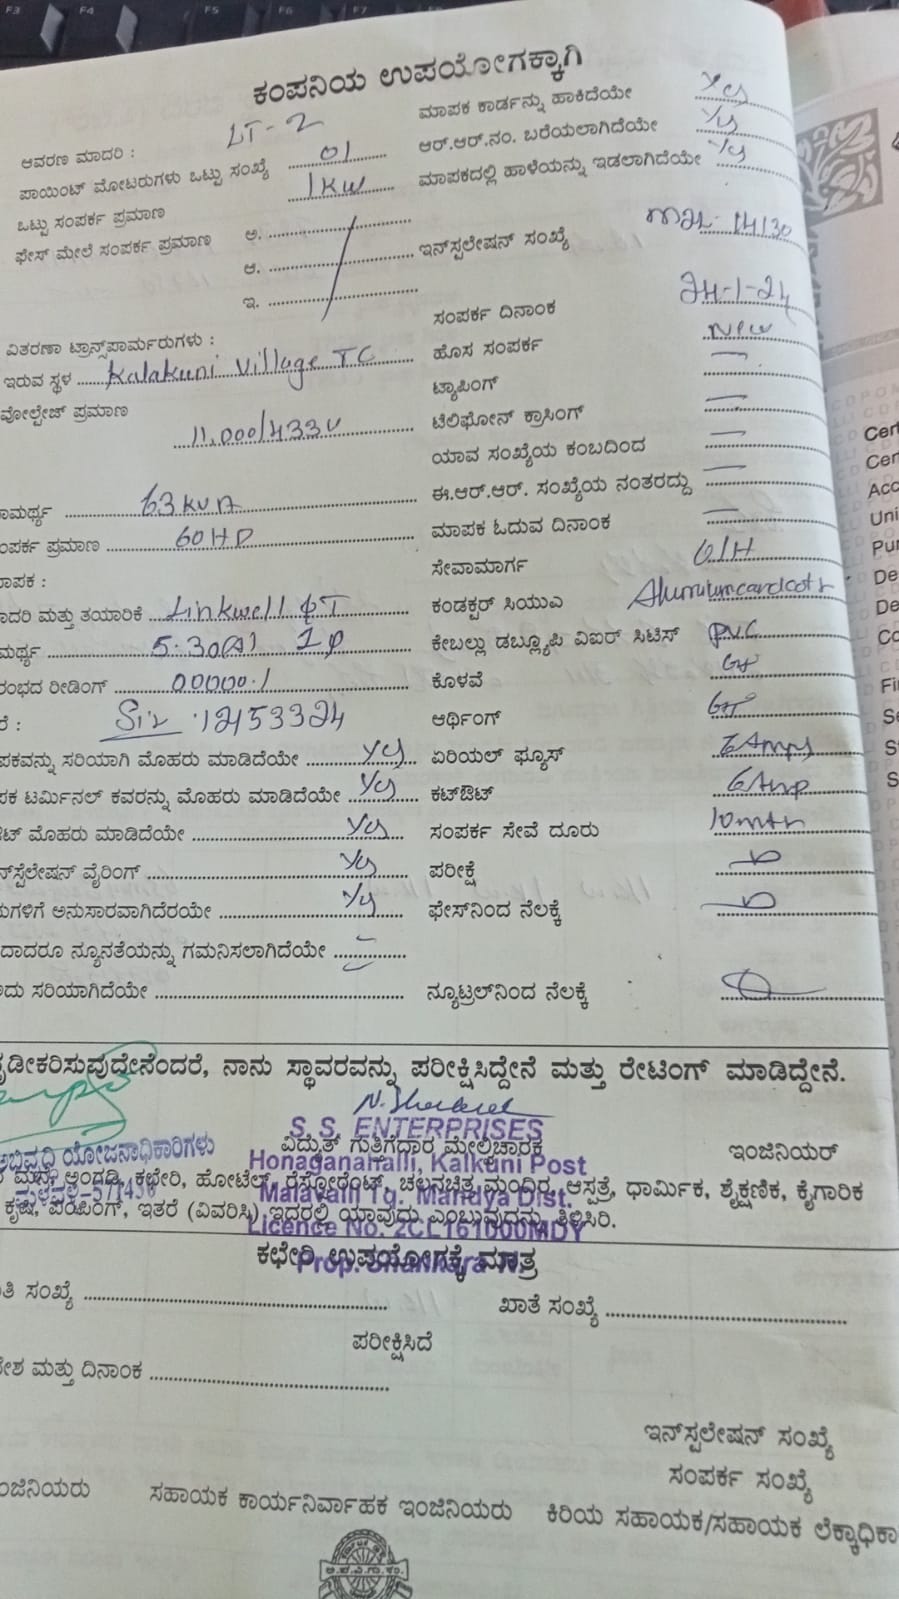 F3 F4 F5 F6 F7
ಕಂಪನಿಯ ಉಪಯೋಗಕ್ಕಾಗಿ
ಆವರಣ ಮಾದರಿ : LT-2
ಮಾಪಕ ಕಾರ್ಡನ್ನು ಹಾಕಿದೆಯೇ Yes
ಪಾಯಿಂಟ್ ಮೋಟರುಗಳು ಒಟ್ಟು ಸಂಖ್ಯೆ 01
ಆರ್.ಆರ್.ನಂ. ಬರೆಯಲಾಗಿದೆಯೇ Yes
ಒಟ್ಟು ಸಂಪರ್ಕ ಪ್ರಮಾಣ 1KW
ಮಾಪಕದಲ್ಲಿ ಹಾಳೆಯನ್ನು ಇಡಲಾಗಿದೆಯೇ Yes
ಫೇಸ್ ಮೇಲೆ ಸಂಪರ್ಕ ಪ್ರಮಾಣ ಅ.
ಆ.
ಇನ್‌ಸ್ಪಲೇಷನ್ ಸಂಖ್ಯೆ 14130
ಇ.
ಸಂಪರ್ಕ ದಿನಾಂಕ 24-1-24
ವಿತರಣಾ ಟ್ರಾನ್ಸ್‌ಪಾರ್ಮರುಗಳು :
ಹೊಸ ಸಂಪರ್ಕ New
ಇರುವ ಸ್ಥಳ Kalakuni Village TC
ಟ್ಯಾಪಿಂಗ್ —
ವೋಲ್ಟೇಜ್ ಪ್ರಮಾಣ
11,000/433V
ಟೆಲಿಫೋನ್ ಕ್ರಾಸಿಂಗ್ —
ಯಾವ ಸಂಖ್ಯೆಯ ಕಂಬದಿಂದ —
ಾಮರ್ಥ್ಯ 63KVA
ಈ.ಆರ್.ಆರ್. ಸಂಖ್ಯೆಯ ನಂತರದ್ದು —
ಂಪರ್ಕ ಪ್ರಮಾಣ 60HP
ಮಾಪಕ ಓದುವ ದಿನಾಂಕ —
ಾಪಕ :
ಸೇವಾಮಾರ್ಗ O/H
ಾದರಿ ಮತ್ತು ತಯಾರಿಕೆ Linkwell
ಕಂಡಕ್ಟರ್ ಸಿಯುಎ
ಮರ್ಥ್ಯ 5-30(A) 1φ
ಕೇಬಲ್ಲು ಡಬ್ಲ್ಯೂಪಿ ವಿಐರ್ ಸಿಟಿಸ್ PVC
ರಂಭದ ರೀಡಿಂಗ್ 00000.1
ಕೊಳವೆ
ರೆ : 12153324
ಆರ್ಥಿಂಗ್
ಪಕವನ್ನು ಸರಿಯಾಗಿ ಮೊಹರು ಮಾಡಿದೆಯೇ Yes
ಏರಿಯಲ್ ಫ್ಯೂಸ್ 6Amps
ಪಕ ಟರ್ಮಿನಲ್ ಕವರನ್ನು ಮೊಹರು ಮಾಡಿದೆಯೇ Yes
ಕಟ್‌ಔಟ್ 6Amp
ಟ್ ಮೊಹರು ಮಾಡಿದೆಯೇ Yes
ಸಂಪರ್ಕ ಸೇವೆ ದೂರು 10mtr
ನ್‌ಸ್ಪೆಲೇಷನ್ ವೈರಿಂಗ್ Yes
ಪರೀಕ್ಷೆ
ುಗಳಿಗೆ ಅನುಸಾರವಾಗಿದೆರಯೇ Yes
ಫೇಸ್‌ನಿಂದ ನೆಲಕ್ಕೆ
ದಾದರೂ ನ್ಯೂನತೆಯನ್ನು ಗಮನಿಸಲಾಗಿದೆಯೇ
ದು ಸರಿಯಾಗಿದೆಯೇ
ನ್ಯೂಟ್ರಲ್‌ನಿಂದ ನೆಲಕ್ಕೆ
ೃಡೀಕರಿಸುವುದೇನೆಂದರೆ, ನಾನು ಸ್ಥಾವರವನ್ನು ಪರೀಕ್ಷಿಸಿದ್ದೇನೆ ಮತ್ತು ರೇಟಿಂಗ್ ಮಾಡಿದ್ದೇನೆ.
S. S. ENTERPRISES
ವಿದ್ಯುತ್ ಗುತ್ತಿಗೆದಾರ ಮೇಲ್ವಿಚಾರಕ
ಇಂಜಿನಿಯರ್
ಅಭಿವೃದ್ಧಿ ಯೋಜನಾಧಿಕಾರಿಗಳು
Honaganahalli, Kalkuni Post
ಮನೆ, ಅಂಗಡಿ, ಕಛೇರಿ, ಹೋಟೆಲ್, ರೆಸ್ಟೋರೆಂಟ್, ಚಲನಚಿತ್ರ ಮಂದಿರ, ಆಸ್ಪತ್ರೆ, ಧಾರ್ಮಿಕ, ಶೈಕ್ಷಣಿಕ, ಕೈಗಾರಿಕ
ಮಳವಳ್ಳಿ-571430
Malavalli Tq. Mandya Dist.
ಕೃಷಿ, ಪಂಪಿಂಗ್, ಇತರೆ (ವಿವರಿಸಿ) ಇದರಲ್ಲಿ ಯಾವುದು ಎಂಬುವುದನ್ನು ತಿಳಿಸಿರಿ.
Licence No. 2CL161000MDY
ಕಛೇರಿ ಉಪಯೋಗಕ್ಕೆ ಮಾತ್ರ
Prop.
ತಿ ಸಂಖ್ಯೆ
ಖಾತೆ ಸಂಖ್ಯೆ
ಪರೀಕ್ಷಿಸಿದೆ
ೇಶ ಮತ್ತು ದಿನಾಂಕ
ಇನ್‌ಸ್ಪಲೇಷನ್ ಸಂಖ್ಯೆ
ಸಂಪರ್ಕ ಸಂಖ್ಯೆ
ಂಜಿನಿಯರು ಸಹಾಯಕ ಕಾರ್ಯನಿರ್ವಾಹಕ ಇಂಜಿನಿಯರು ಕಿರಿಯ ಸಹಾಯಕ/ಸಹಾಯಕ ಲೆಕ್ಕಾಧಿಕಾ
Cert
Cer
Acc
Uni
Pur
De
De
Co
Fi
Se
S
S